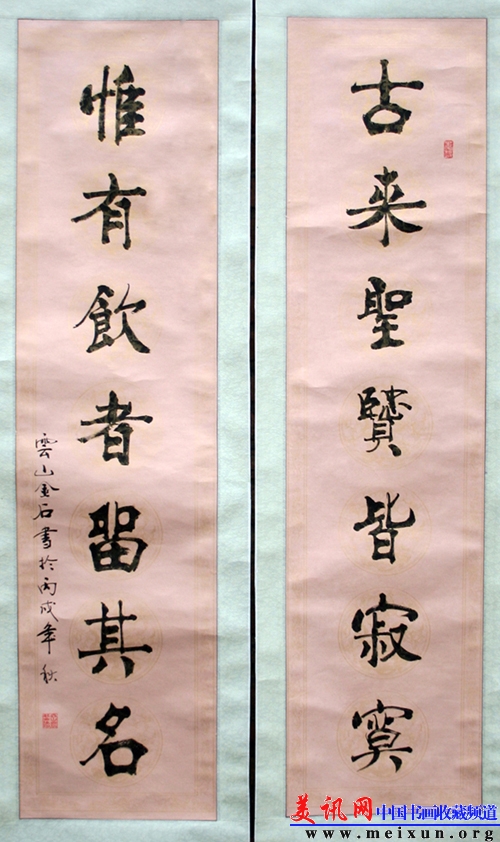 古来聖賢皆寂寞
惟有飲者留其名
雲山金石書於丙戌年秋
美讯网 中国书画收藏频道
www.meixun.org